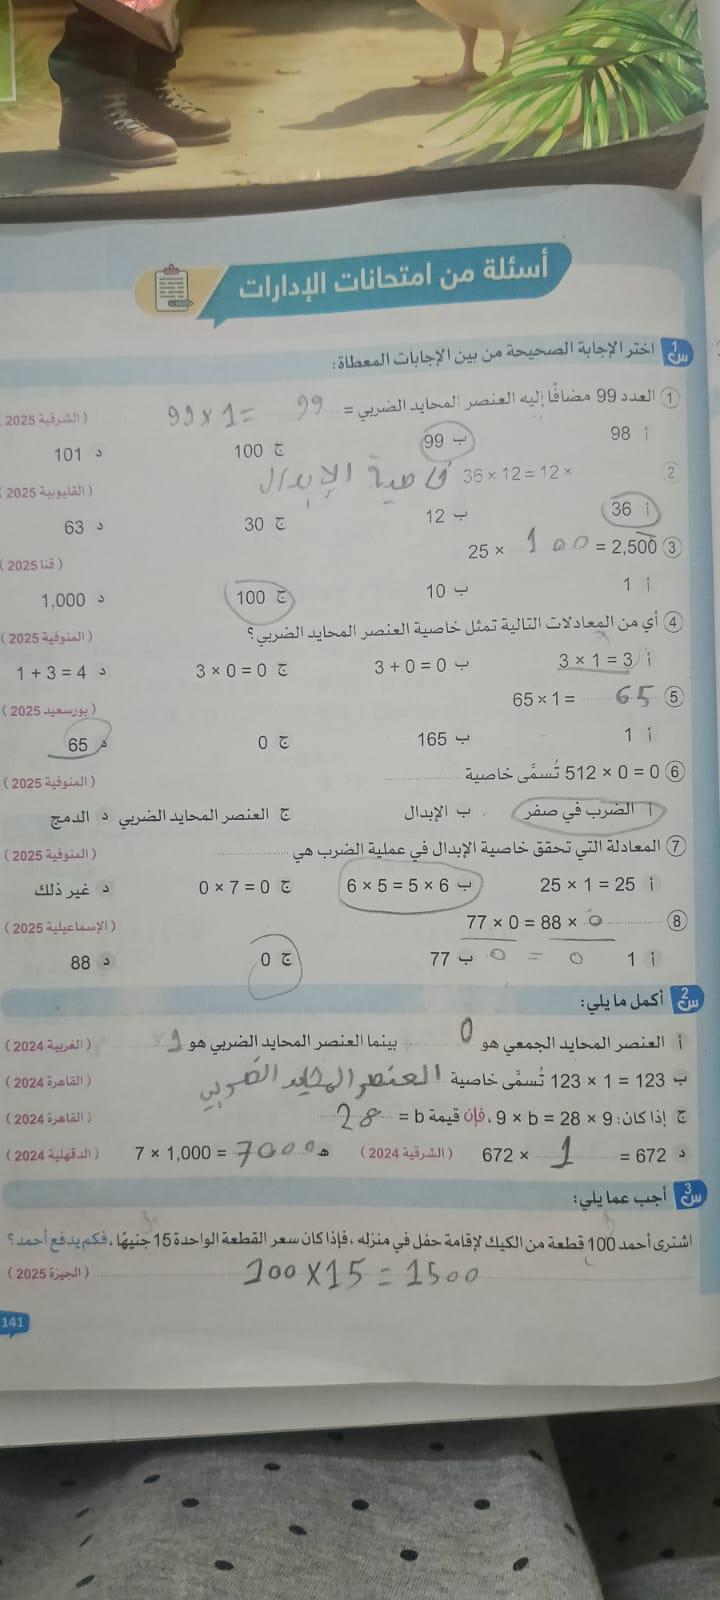 أسئلة من امتحانات الإدارات
س1 اختر الإجابة الصحيحة من بين الإجابات المعطاة:
1 العدد 99 مضافًا إليه العنصر المحايد الضربي = 99 99 × 1 = (الشرقية 2025)
أ 98 ب 99 ج 100 د 101
2 36 × 12 = 12 × خاصية الإبدال (القليوبية 2025)
أ 36 ب 12 ج 30 د 63
3 25 × 100 = 2,500 (قنا 2025)
أ 1 ب 10 ج 100 د 1,000
4 أي من المعادلات التالية تمثل خاصية العنصر المحايد الضربي؟ (المنوفية 2025)
أ 3 × 1 = 3 ب 3 + 0 = 0 ج 3 × 0 = 0 د 1 + 3 = 4
5 65 × 1 = 65 (بورسعيد 2025)
أ 1 ب 165 ج 0 د 65
6 512 × 0 = 0 تُسمَّى خاصية (المنوفية 2025)
أ الضرب في صفر ب الإبدال ج العنصر المحايد الضربي د الدمج
7 المعادلة التي تحقق خاصية الإبدال في عملية الضرب هي (المنوفية 2025)
أ 25 × 1 = 25 ب 6 × 5 = 5 × 6 ج 0 × 7 = 0 د غير ذلك
8 77 × 0 = 88 × 0 (الإسماعيلية 2025)
0 = 0
أ 1 ب 77 ج 0 د 88
س2 أكمل ما يلي:
أ العنصر المحايد الجمعي هو 0 بينما العنصر المحايد الضربي هو 1 (الغربية 2024)
ب 123 × 1 = 123 تُسمَّى خاصية العنصر المحايد الضربي (القاهرة 2024)
ج إذا كان: 9 × b = 28 × 9، فإن قيمة b = 28 (القاهرة 2024)
د 672 × 1 = 672 (الشرقية 2024) هـ 7 × 1,000 = 7000 (الدقهلية 2024)
س3 أجب عما يلي:
اشترى أحمد 100 قطعة من الكيك لإقامة حفل في منزله، فإذا كان سعر القطعة الواحدة 15 جنيهًا، فكم يدفع أحمد؟
100 × 15 = 1500 (الجيزة 2025)
141